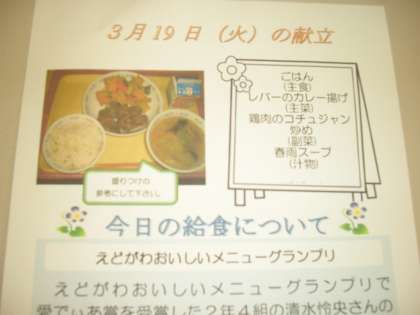 3月19日（火）の献立
ごはん
（主食）
レバーのカレー揚げ
（主菜）
鶏肉のコチュジャン
炒め
（副菜）
春雨スープ
（汁物）
盛りつけの
参考にして下さい。
今日の給食について
えどがわおいしいメニューグランプリ
えどがわおいしいメニューグランプリで
愛でぃあ賞を受賞した２年４組の清水怜央さんの